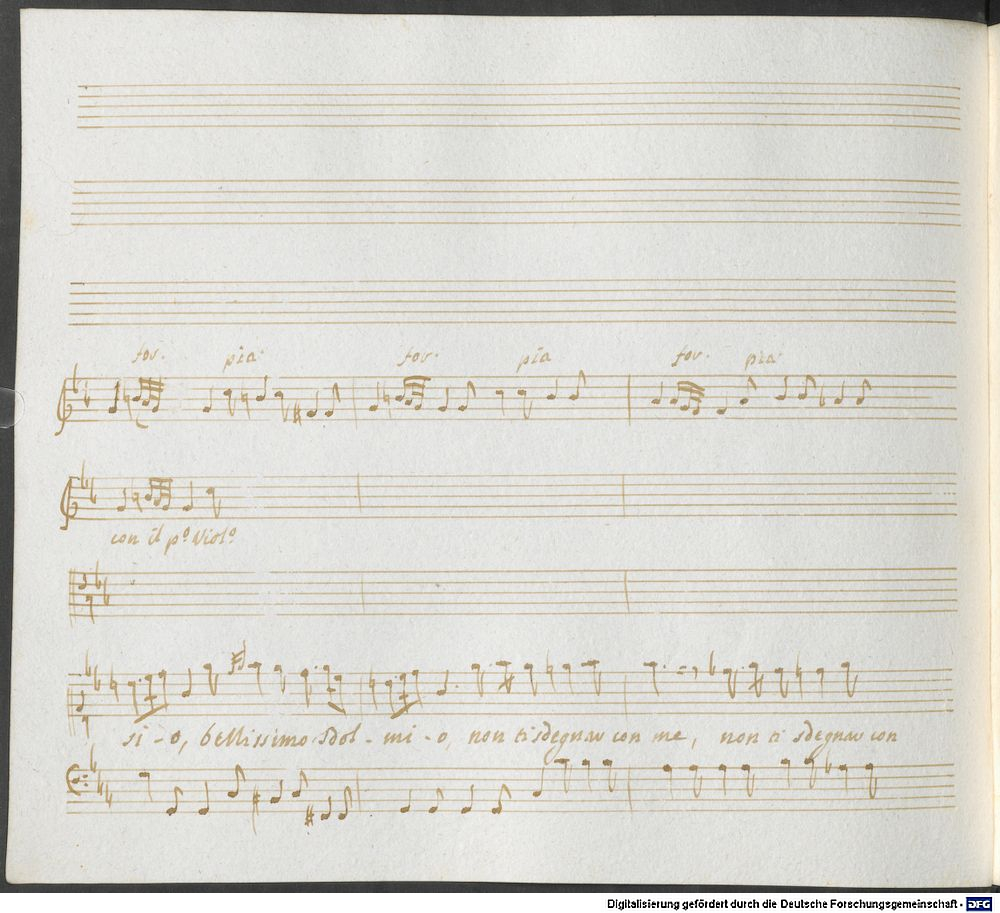 for. pia. for. pia for. pia.
con il p.º Viol.º
si-o, bellissimo Idol-mi-o, non ti sdegnar con me, non ti sdegnar con
Digitalisierung gefördert durch die Deutsche Forschungsgemeinschaft - DFG